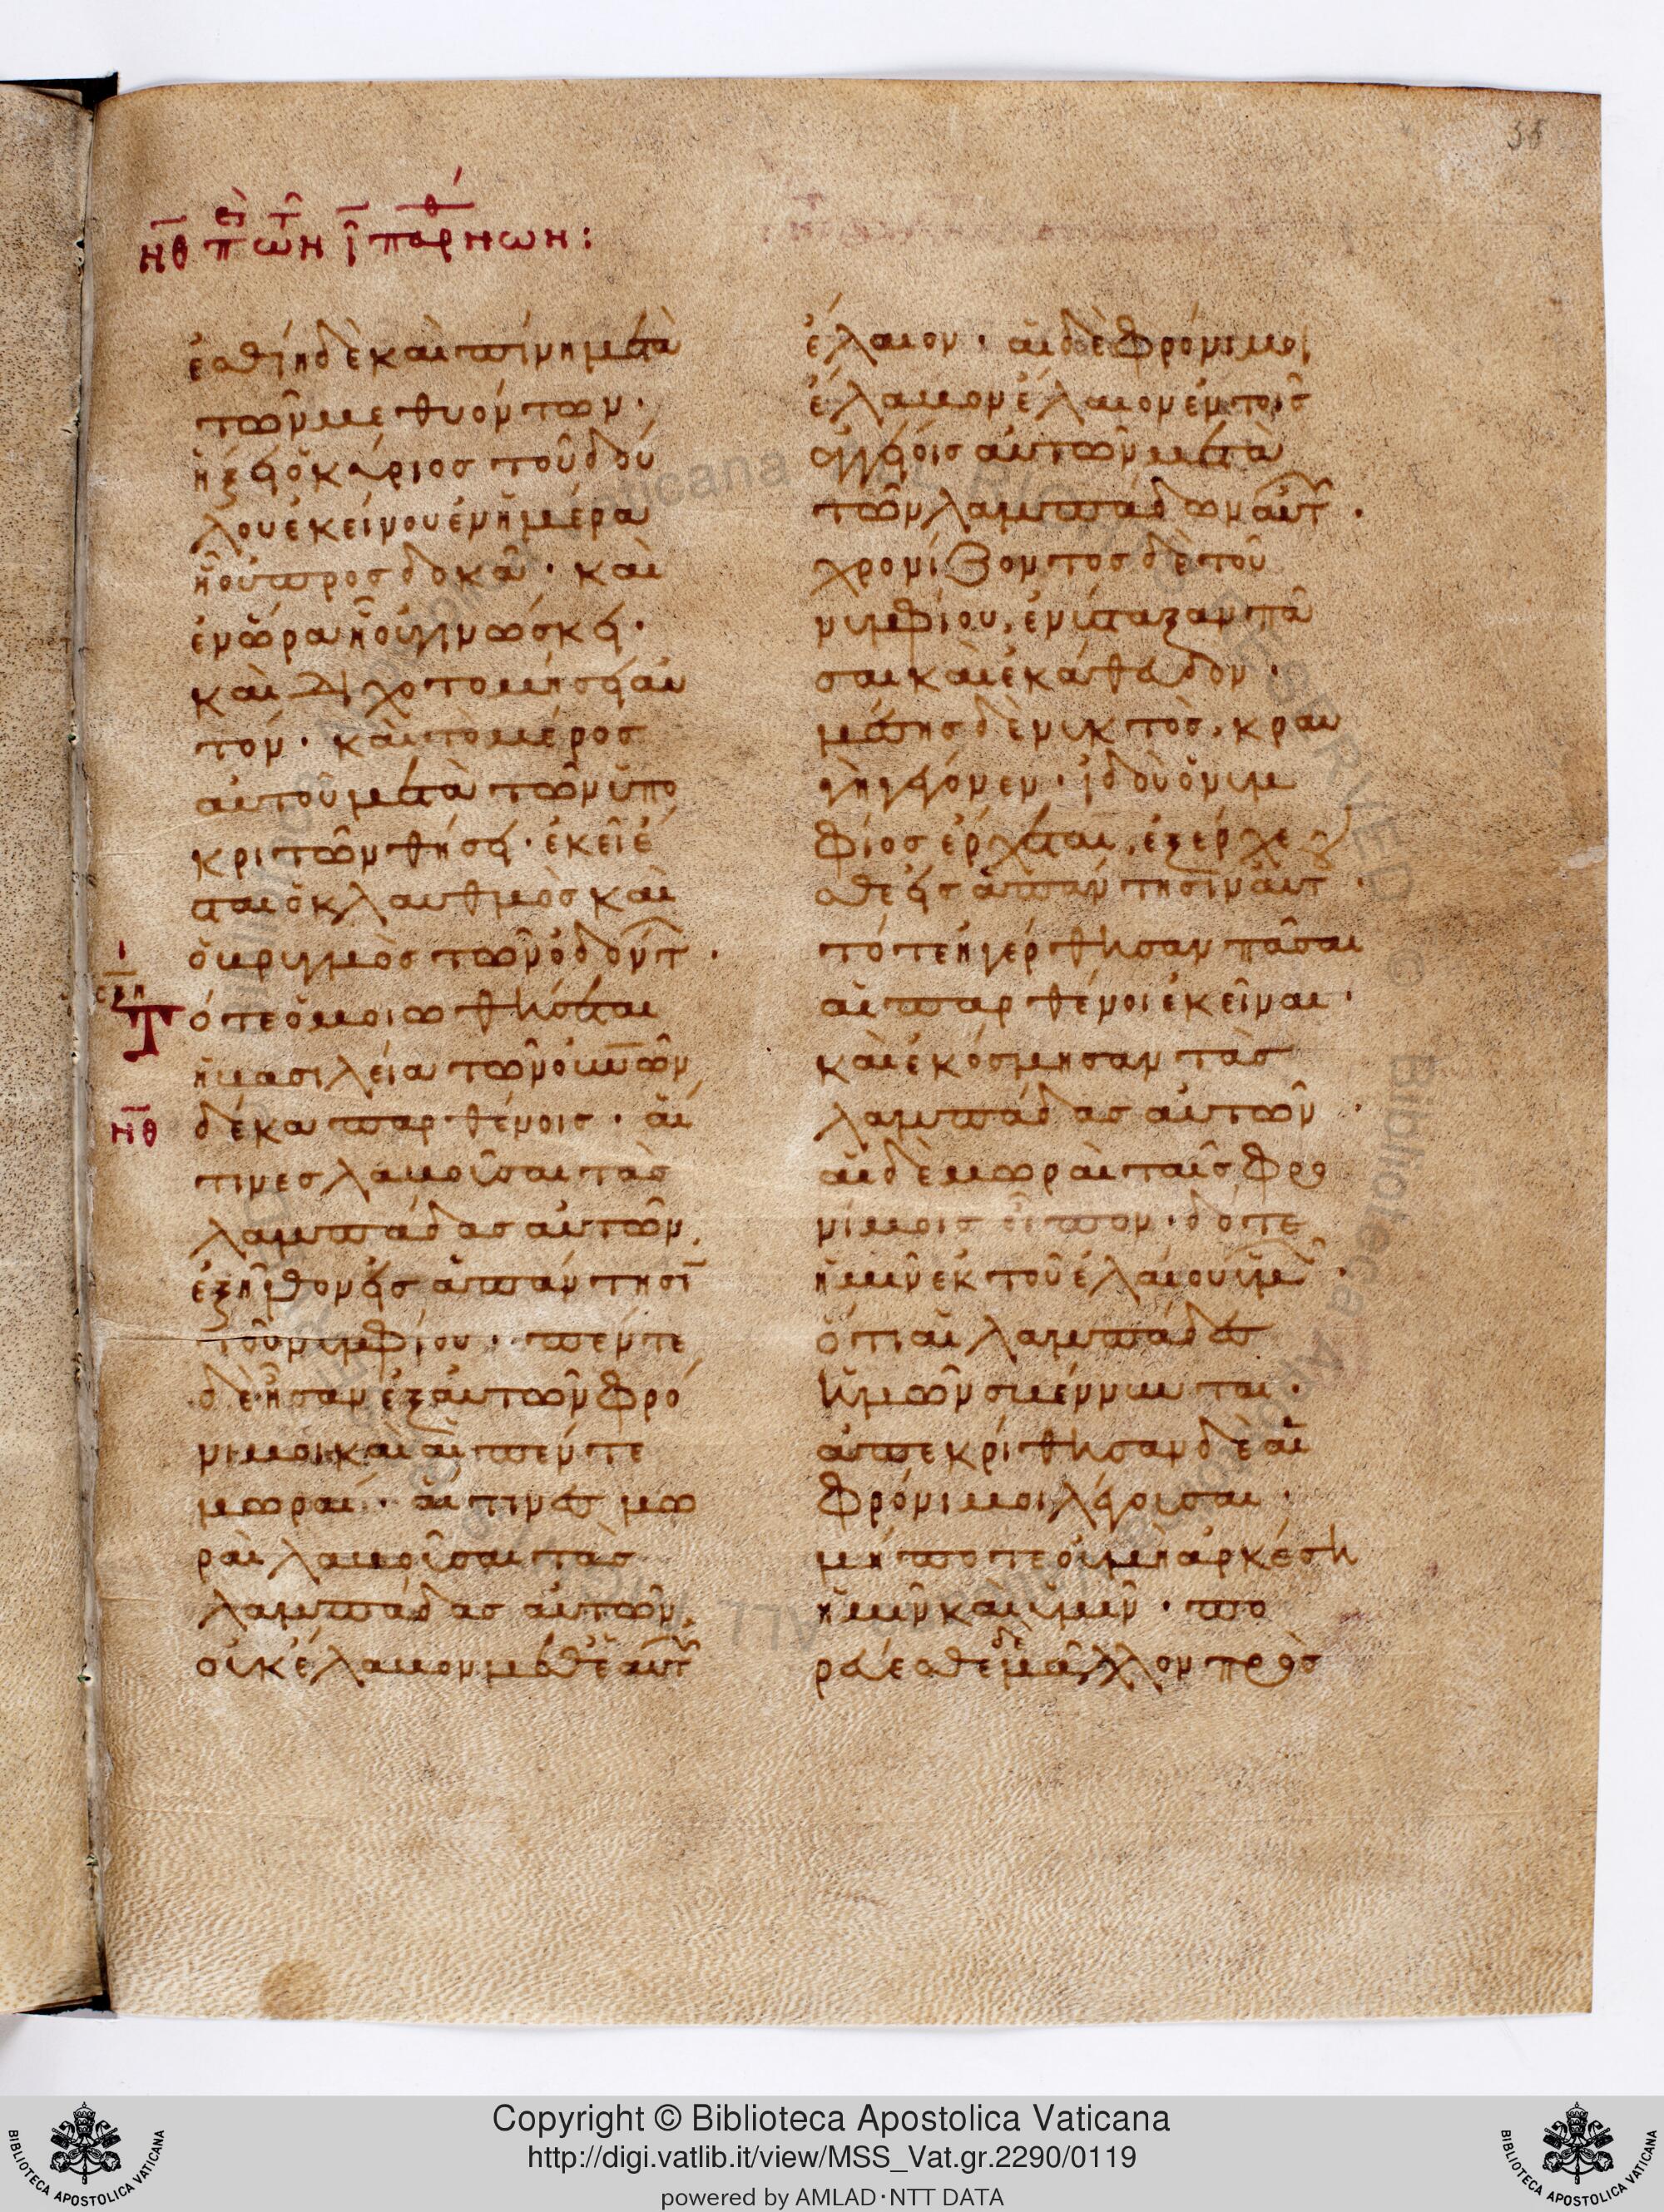 58
ΝΘ ΠΕΡΙ ΤΩΝ Ι ΠΑΡΘΕΝΩΝ:
ἐσθίη δὲ καὶ πίνη μετὰ
τῶν μεθυόντων·
ἥξει ὁ κύριοσ τοῦ δού
λου ἐκείνου ἐν ἡμέρα
ἧ οὐ προσδοκᾶ· καὶ
ἐν ὥρα ἧ οὐ γινώσκει·
καὶ διχοτομήσει αὐ
τόν· καὶ τὸ μέροσ
αὐτοῦ μετὰ τῶν ὑπο
κριτῶν θήσει· ἐκεῖ ἔ
σται ὁ κλαυθμὸσ καὶ
ὁ βρυγμὸσ τῶν ὀδόντ·
Τότε ὁμοιωθήσεται
ἡ βασιλεία τῶν οὐνῶν
ΝΘ
δέκα παρθένοισ· αἵ
τινεσ λαβοῦσαι τὰσ
λαμπάδασ αὐτῶν,
ἐξῆλθον εἰσ ἀπάντησῖ
τοῦ νυμφίου· πέντε
δὲ ἦσαν ἐξ αὐτῶν φρό
νιμοι καὶ αἱ πέντε
μωραί· αἵτινεσ μω
ραὶ λαβοῦσαι τὰσ
λαμπάδασ αὐτῶν,
οὐκ ἔλαβον μεθ' ἑαυτ
ἔλαιον· αἱ δὲ φρόνιμοι
ἔλαβον ἔλαιον ἐν τοῖσ
ἀγγείοισ αὐτῶν μετὰ
τῶν λαμπάδων αὐτ·
χρονίζοντοσ δὲ τοῦ
νυμφίου, ἐνύσταξαν πᾶ
σαι καὶ ἐκάθευδον·
μέσησ δὲ νυκτὸσ, κραυ
γὴ γέγονεν· ἰδοὺ ὁ νυμ
φίοσ ἔρχεται, ἐξέρχε
σθε εἰσ ἀπάντησιν αὐτ·
τότε ἠγέρθησαν πᾶσαι
αἱ παρθένοι ἐκεῖναι·
καὶ ἐκόσμησαν τὰσ
λαμπάδασ αὐτῶν·
αἱ δὲ μωραὶ ταῖσ φρο
νίμοισ εἶπον· δότε
ἡμῖν ἐκ τοῦ ἐλαίου ὑμ·
ὅτι αἱ λαμπάδεσ
ἡμῶν σβέννυνται·
ἀπεκρίθησαν δὲ αἱ
φρόνιμοι λέγουσαι·
μήποτε οὐ μὴ ἀρκέση
ἡμῖν καὶ ὑμῖν· πο
ρεύεσθε δὲ μᾶλλον πρὸσ
Copyright © Biblioteca Apostolica Vaticana
http://digi.vatlib.it/view/MSS_Vat.gr.2290/0119
powered by AMLAD·NTT DATA
BIBLIOTECA APOSTOLICA VATICANA
BIBLIOTECA APOSTOLICA VATICANA